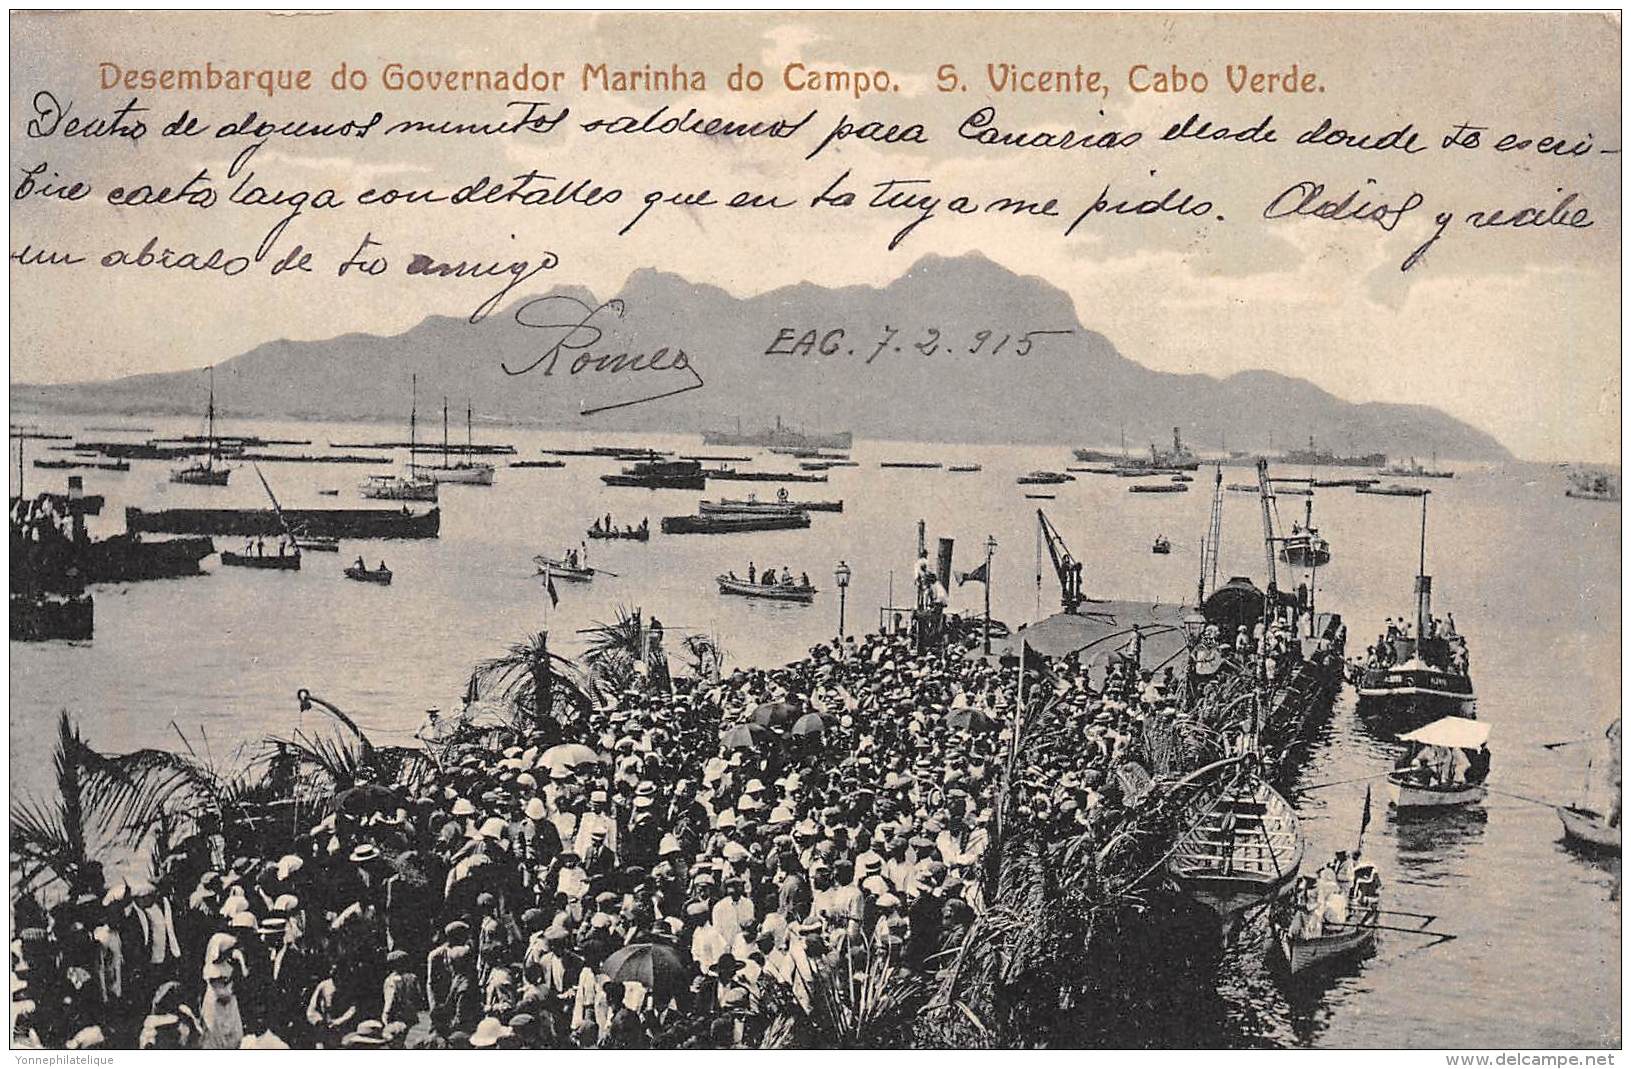 Desembarque do Governador Marinha do Campo. S. Vicente, Cabo Verde.
Dentro de algunos minutos saldremos para Canarias desde donde te escri-
bire carta larga con detalles que en la tuya me pides. Adios y recibe
un abrazo de tu amigo
Romeo
EAG. 7.2.915
Yonnephilatelique
www.delcampe.net